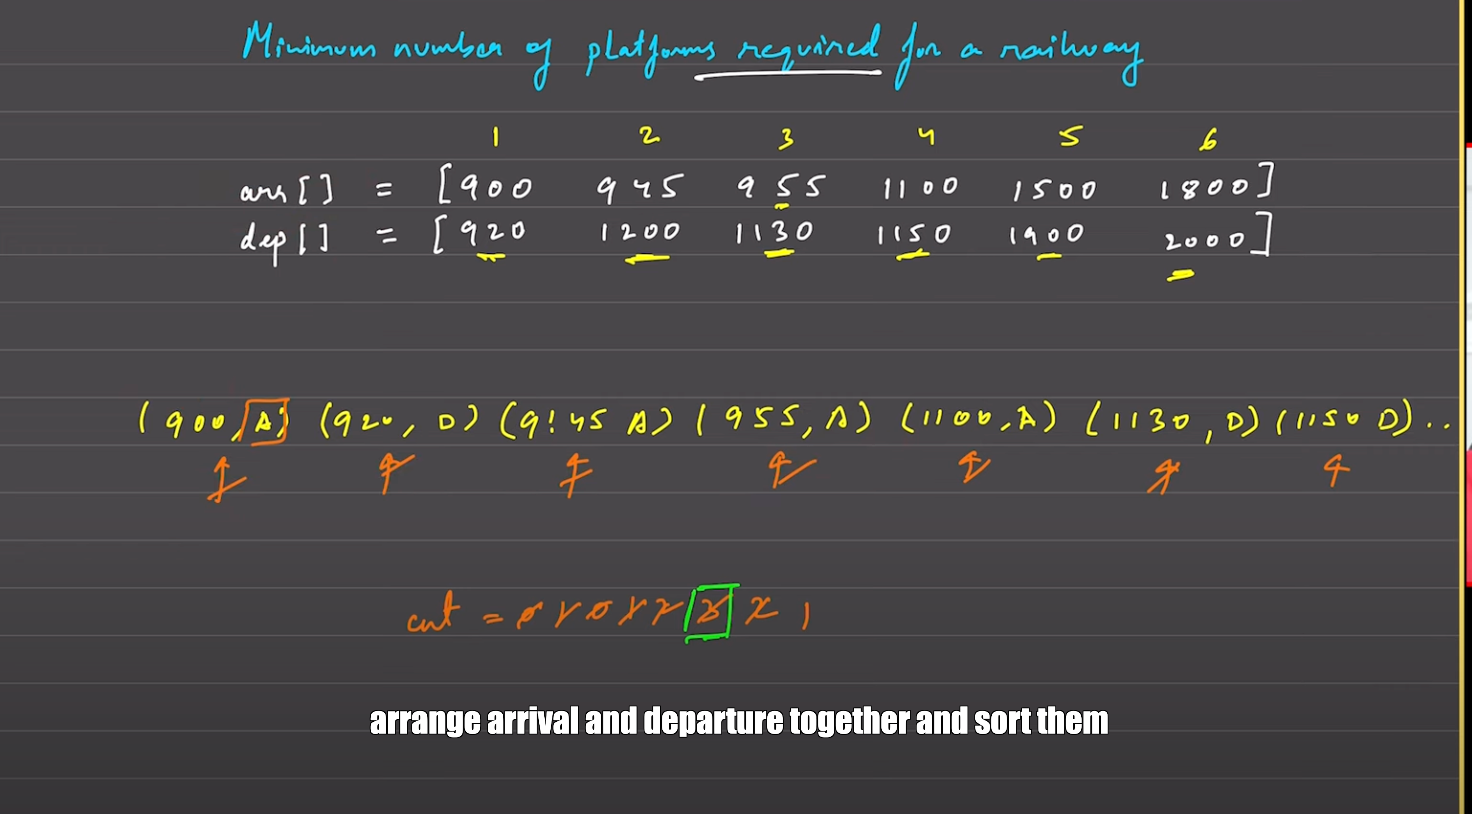 Minimum number of platforms required for a railway
1 2 3 4 5 6
arr[] = [900 945 955 1100 1500 1800]
dep[] = [920 1200 1130 1150 1900 2000]
(900, A) (920, D) (9:45 A) (955, A) (1100, A) (1130, D) (1150 D) ..
cnt = 0 1 0 1 2 3 2 1
arrange arrival and departure together and sort them